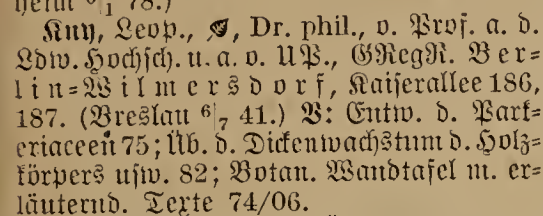 hermi 6/1 78.)
Kny, Leop., Dr. phil., o. Prof. a. d.
Ldw. Hochsch. u. a. o. UP., GRegR. Ber-
lin-Wilmersdorf, Kaiserallee 186,
187. (Breslau 6/7 41.) V: Entw. d. Park-
eriaceen 75; Üb. d. Dickenwachstum d. Holz-
körpers usw. 82; Botan. Wandtafel m. er-
läuternd. Texte 74/06.